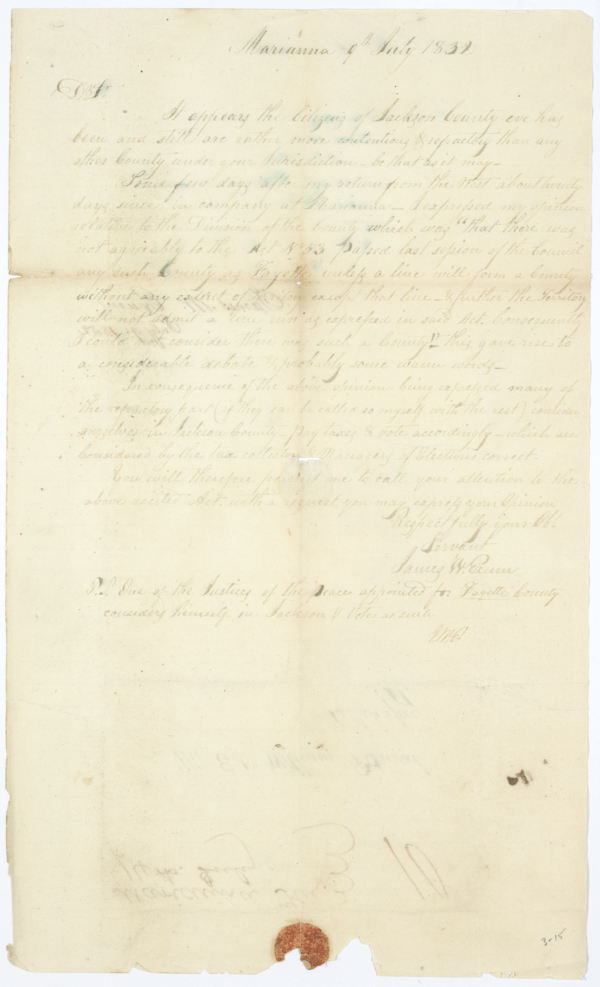 Marianna 9th July 1832
D. Sir
It appears the Citizens of Jackson County eve has
been and still are rather more contentious & refractory than any
other County under your Jurisdiction - be that as it may -
Some few days after my return from the West about twenty
days since in company at Marianna - I expressed my opinion
relative to the Division of the County which was "that there was
not agreeably to the Act No 53 passed last session of the Council
any such County as Fayette unless a line will form a County
without any extent of except that line - & further the Territory
will not admit a line as expressed in said Act. Consequently
I could not consider there was such a County" this gave rise to
a considerable debate & probably some warm words -
In consequence of the above opinion being expressed many of
the refractory part (if they can be called so myself with the rest) consider
ourselves in Jackson County - pay taxes & vote accordingly - which are
Considered by the tax collector & Managers of Elections correct.
You will therefore permit me to call your attention to the
above recited Act. with a request you may express your Opinion
Respectfully your Obt
Servant
James W.
P.S. One of the Justices of the peace appointed for Fayette County
considers himself in Jackson & Votes as such
3-18